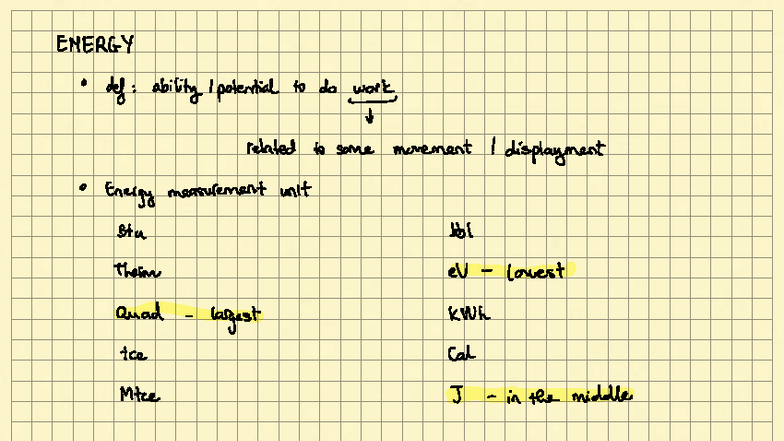 ENERGY
• def: ability / potential to do work
related to some movement / displayment
• Energy measurement unit
Btu
Therm
Quad - largest
tce
Mtce
bbl
eV - lowest
kWh
Cal
J - in the middle